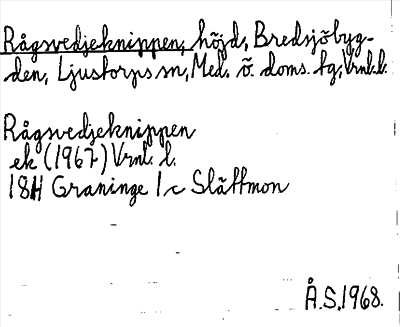 Rågsvedjeknippen, höjd, Bredsjöbyg-
den, Ljustorps sn, Med. ö. doms. tg, Vrnl. l.
Rågsvedjeknippen
ek (1967) Vrnl. l.
18H Graninge 1c Slättmon
Å.S. 1968.